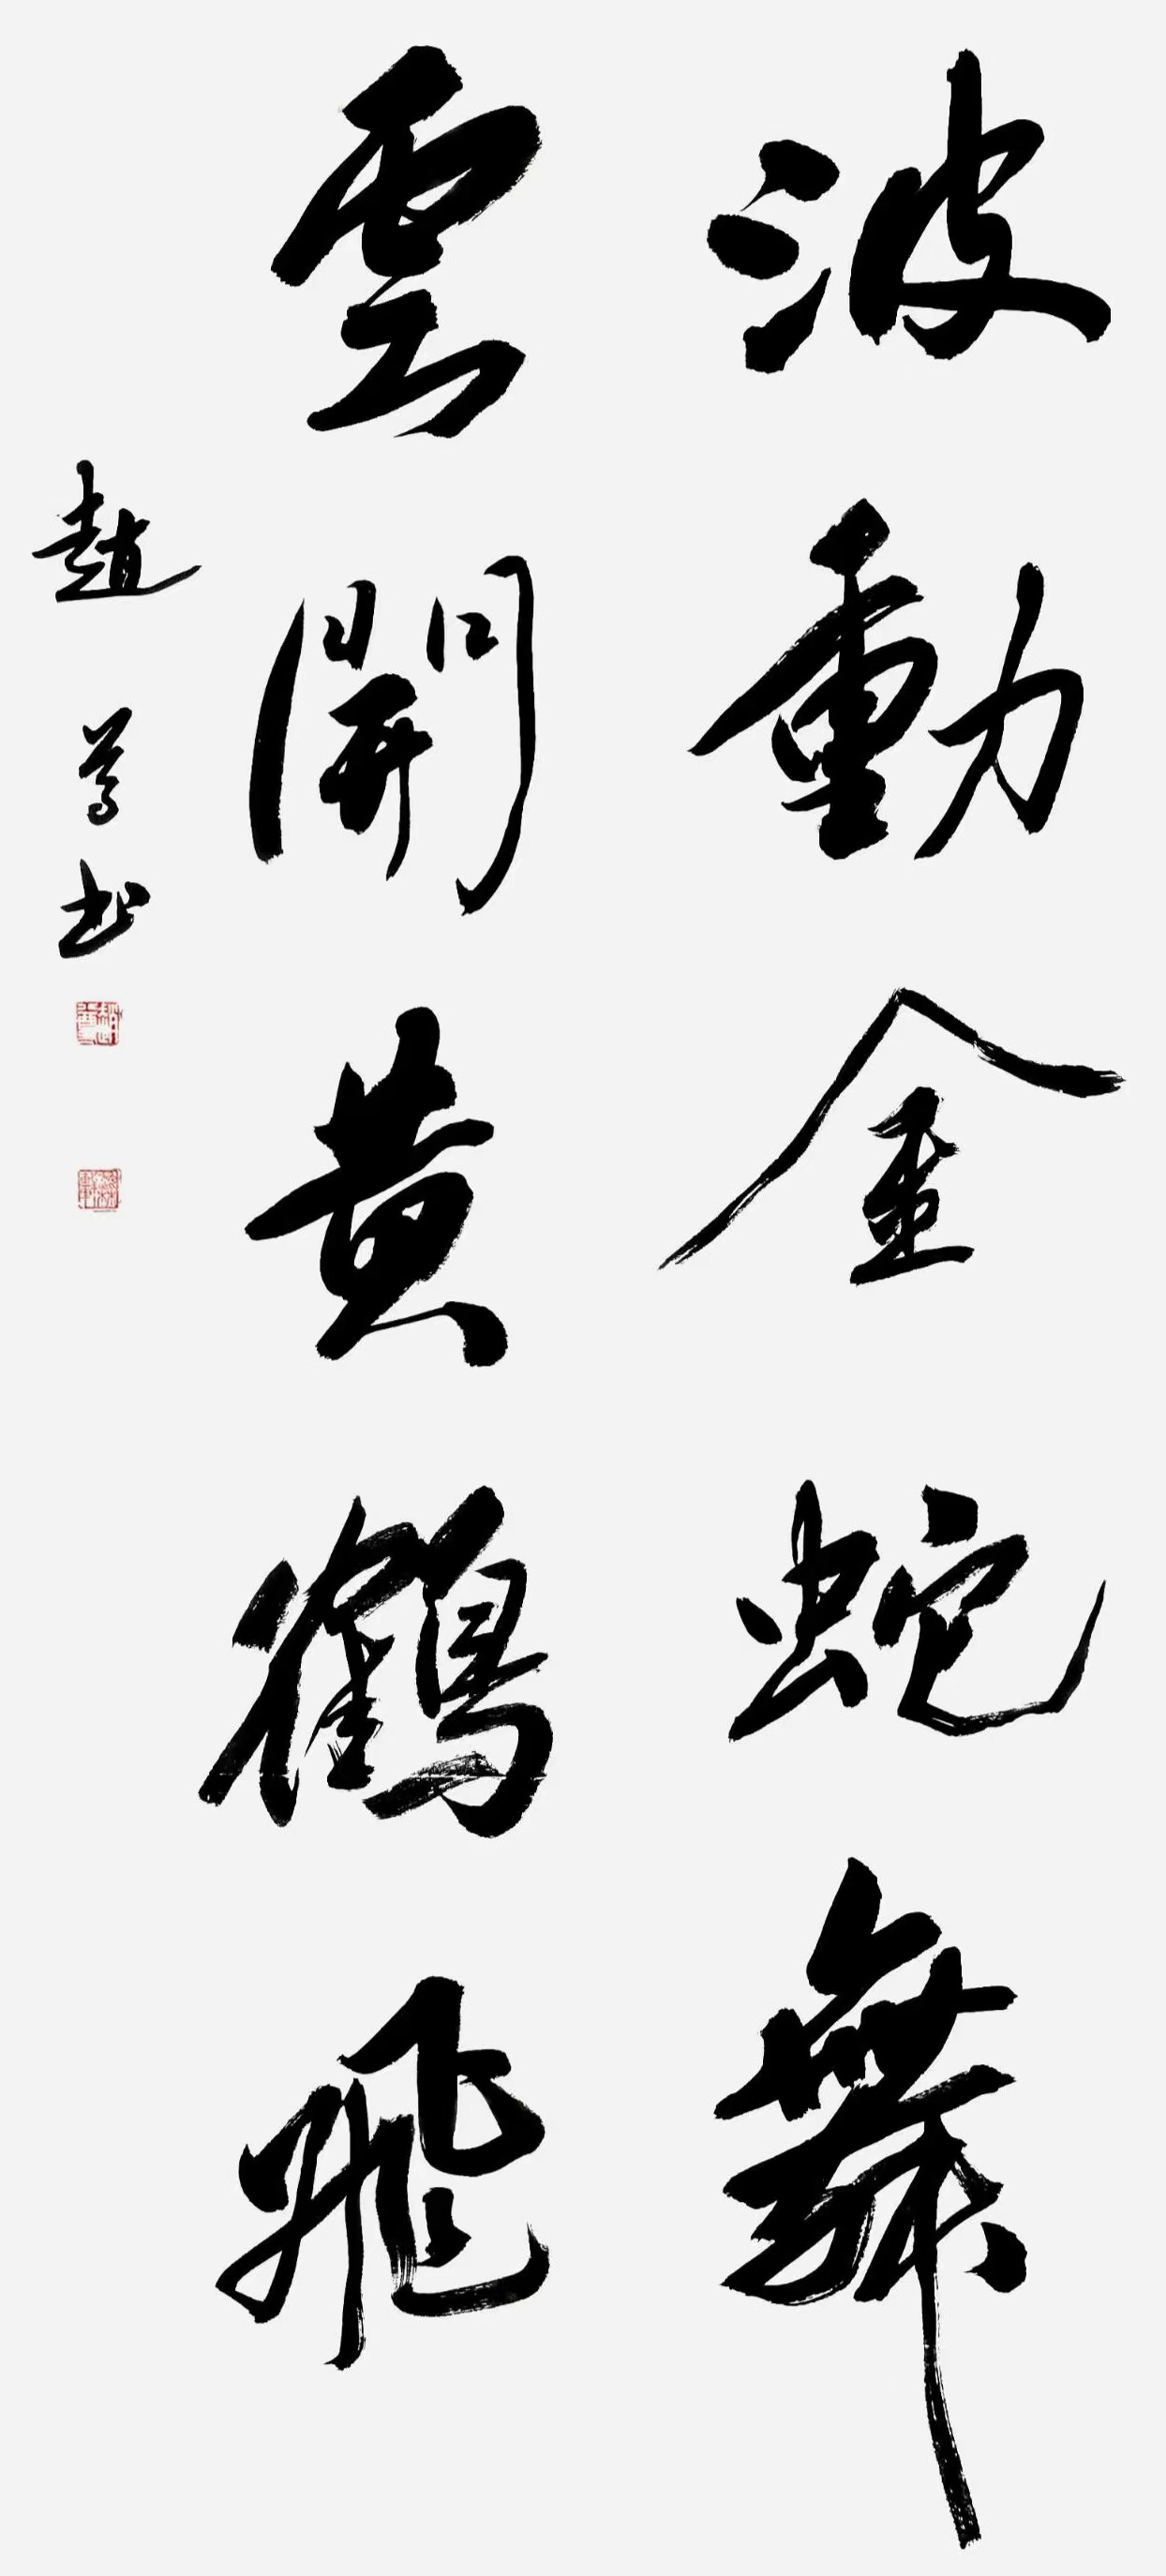 波動金蛇舞
雲開黄鶴飛
趙 書